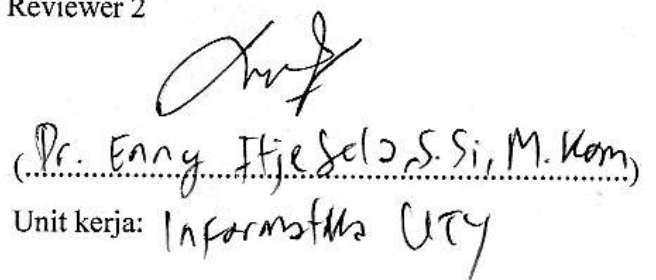 Reviewer 2
(Dr. Enny Itje Sela, S.Si, M.Kom)
Unit kerja: Informatika UTY